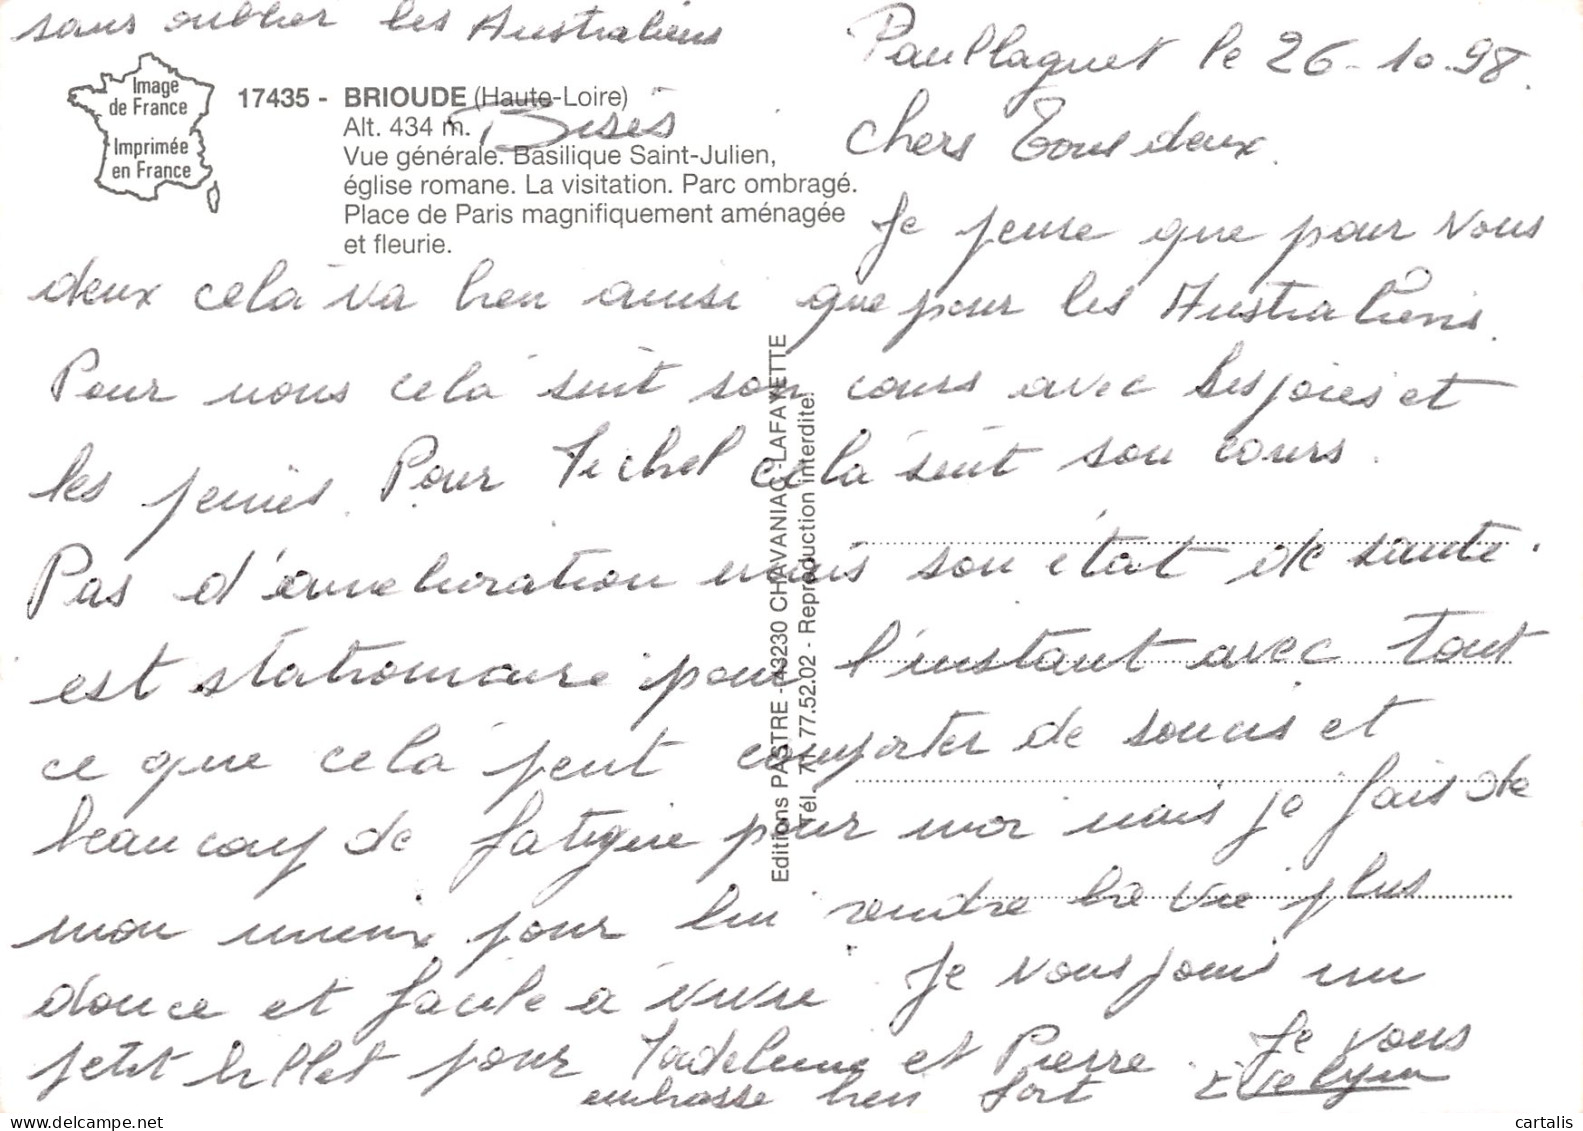 sans oublier les Australiens
Bises
Image
de France
Imprimée
en France
17435 - BRIOUDE (Haute-Loire)
Alt. 434 m.
Vue générale. Basilique Saint-Julien,
église romane. La visitation. Parc ombragé.
Place de Paris magnifiquement aménagée
et fleurie.
Paulhaguet le 26-10-98.
Chers Tous deux.
Je pense que pour vous
deux cela va bien ainsi que pour les Australiens.
Pour nous cela suit son cours avec les joies et
les peines. Pour Michel cela suit son cours.
Pas d'amelioration mais son état de santé.
est stationnaire pour l'instant avec tout
ce que cela peut comporter de soucis et
beaucoup de fatigue pour moi mais je fais de
mon mieux pour lui rendre la vie plus
douce et facile a vivre. Je vous joins un
petit billet pour Madeleine et Pierre. Je vous
embrasse bien fort Evelyne
Editions PASTRE - 43230 CHAVANIAC-LAFAYETTE
Tél. 71 77.52.02 - Reproduction interdite!
cartalis